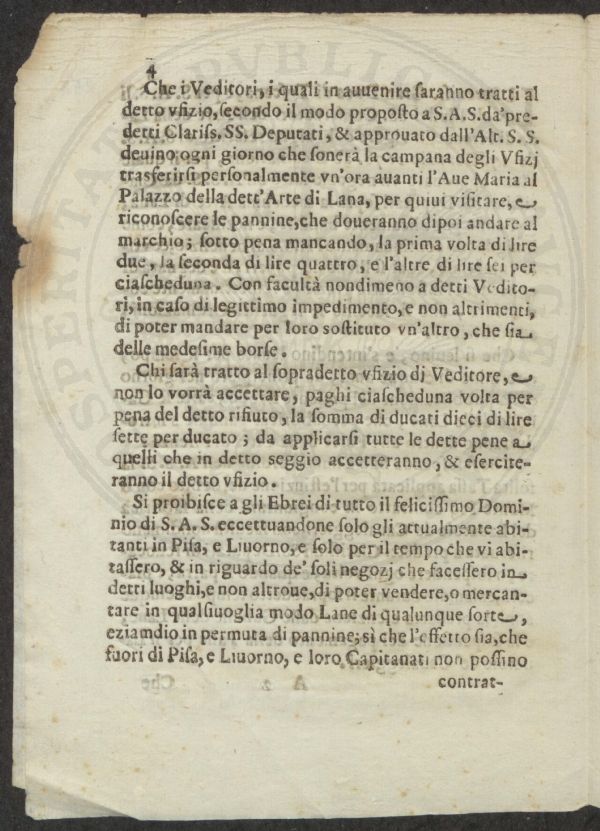 4
Che i Veditori, i quali in auuenire saranno tratti al
detto vfizio, secondo il modo proposto a S.A.S. da' pre-
detti Clariss. SS. Deputati, & approuato dall'Alt. S. S.
deuino ogni giorno che sonerà la campana degli Vfizj
trasferirsi personalmente vn'ora auanti l'Aue Maria al
Palazzo della dett'Arte di Lana, per quiui visitare, e
riconoscere le pannine, che doueranno dipoi andare al
marchio; sotto pena mancando, la prima volta di lire
due, la seconda di lire quattro, e l'altre di lire sei per
ciascheduna. Con facultà nondimeno a detti Vedito-
ri, in caso di legittimo impedimento, e non altrimenti,
di poter mandare per loro sostituto vn'altro, che sia
delle medesime borse.
Chi sarà tratto al sopradetto vfizio dj Veditore, e
non lo vorrà accettare, paghi ciascheduna volta per
pena del detto rifiuto, la somma di ducati dieci di lire
sette per ducato; da applicarsi tutte le dette pene a
quelli che in detto seggio accetteranno, & esercite-
ranno il detto vfizio.
Si proibisce a gli Ebrei di tutto il felicissimo Domi-
nio di S. A. S. eccettuandone solo gli attualmente abi-
tanti in Pisa, e Liuorno, e solo per il tempo che vi abi-
tassero, & in riguardo de' soli negozj che facessero in
detti luoghi, e non altroue, di poter vendere, o mercan-
tare in qualsiuoglia modo Lane di qualunque sorte,
eziamdio in permuta di pannine; sì che l'effetto sia, che
fuori di Pisa, e Liuorno, e loro Capitanati non possino
contrat-